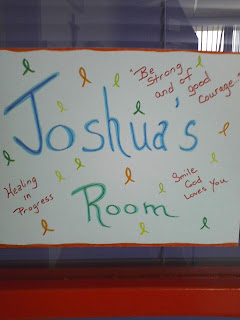 "Be
Strong
and of
good
Courage...
Joshua's
Healing
in
Progress
Room
Smile
God
Loves You